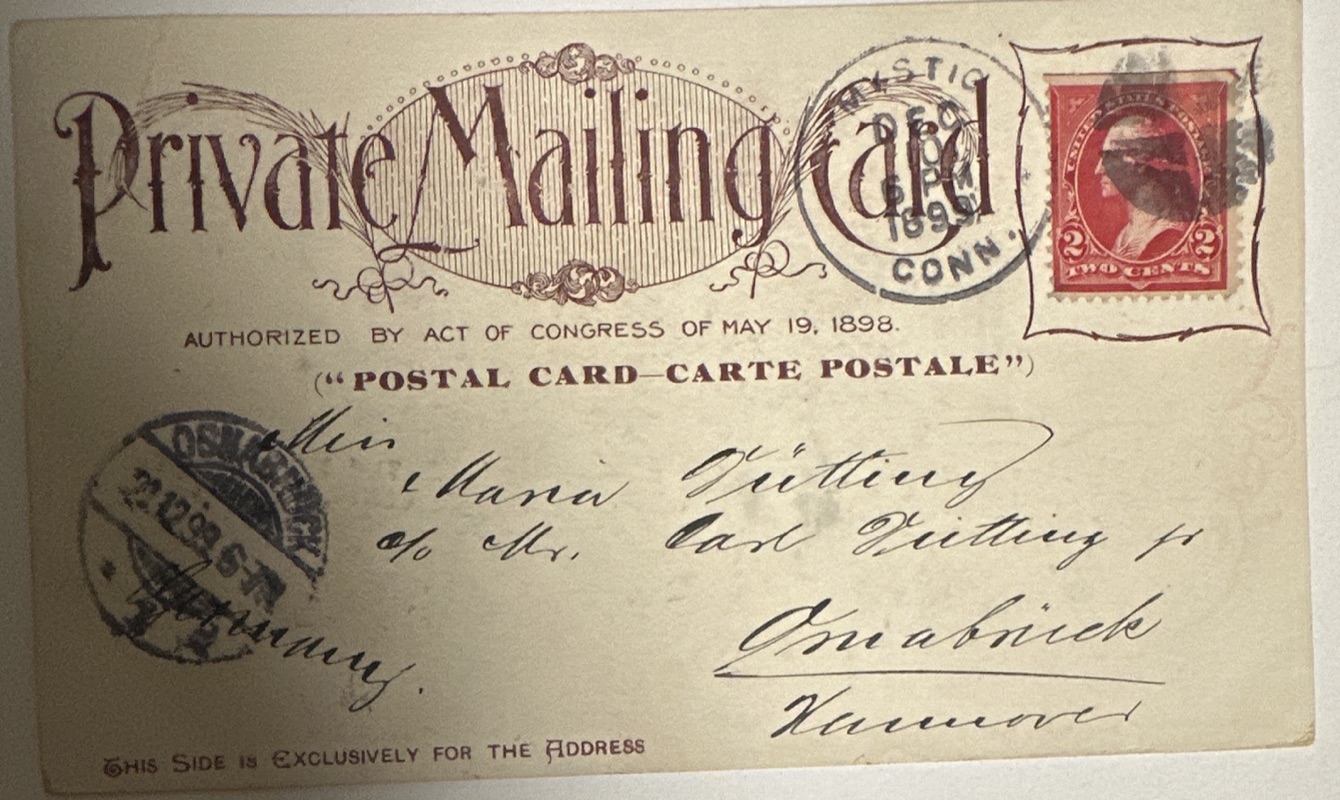 Private Mailing Card
MYSTIC
DEC
10
6 PM
1899
CONN.
UNITED STATES POSTAGE
2 2
TWO CENTS
AUTHORIZED BY ACT OF CONGRESS OF MAY 19, 1898.
("POSTAL CARD—CARTE POSTALE")
OSNABRÜCK
22.12.99. 6-7N
* 2
Miss
Maria Dütting
c/o Mr. Carl Dütting jr
Osnabrück
Hannover
Germany.
THIS SIDE IS EXCLUSIVELY FOR THE ADDRESS